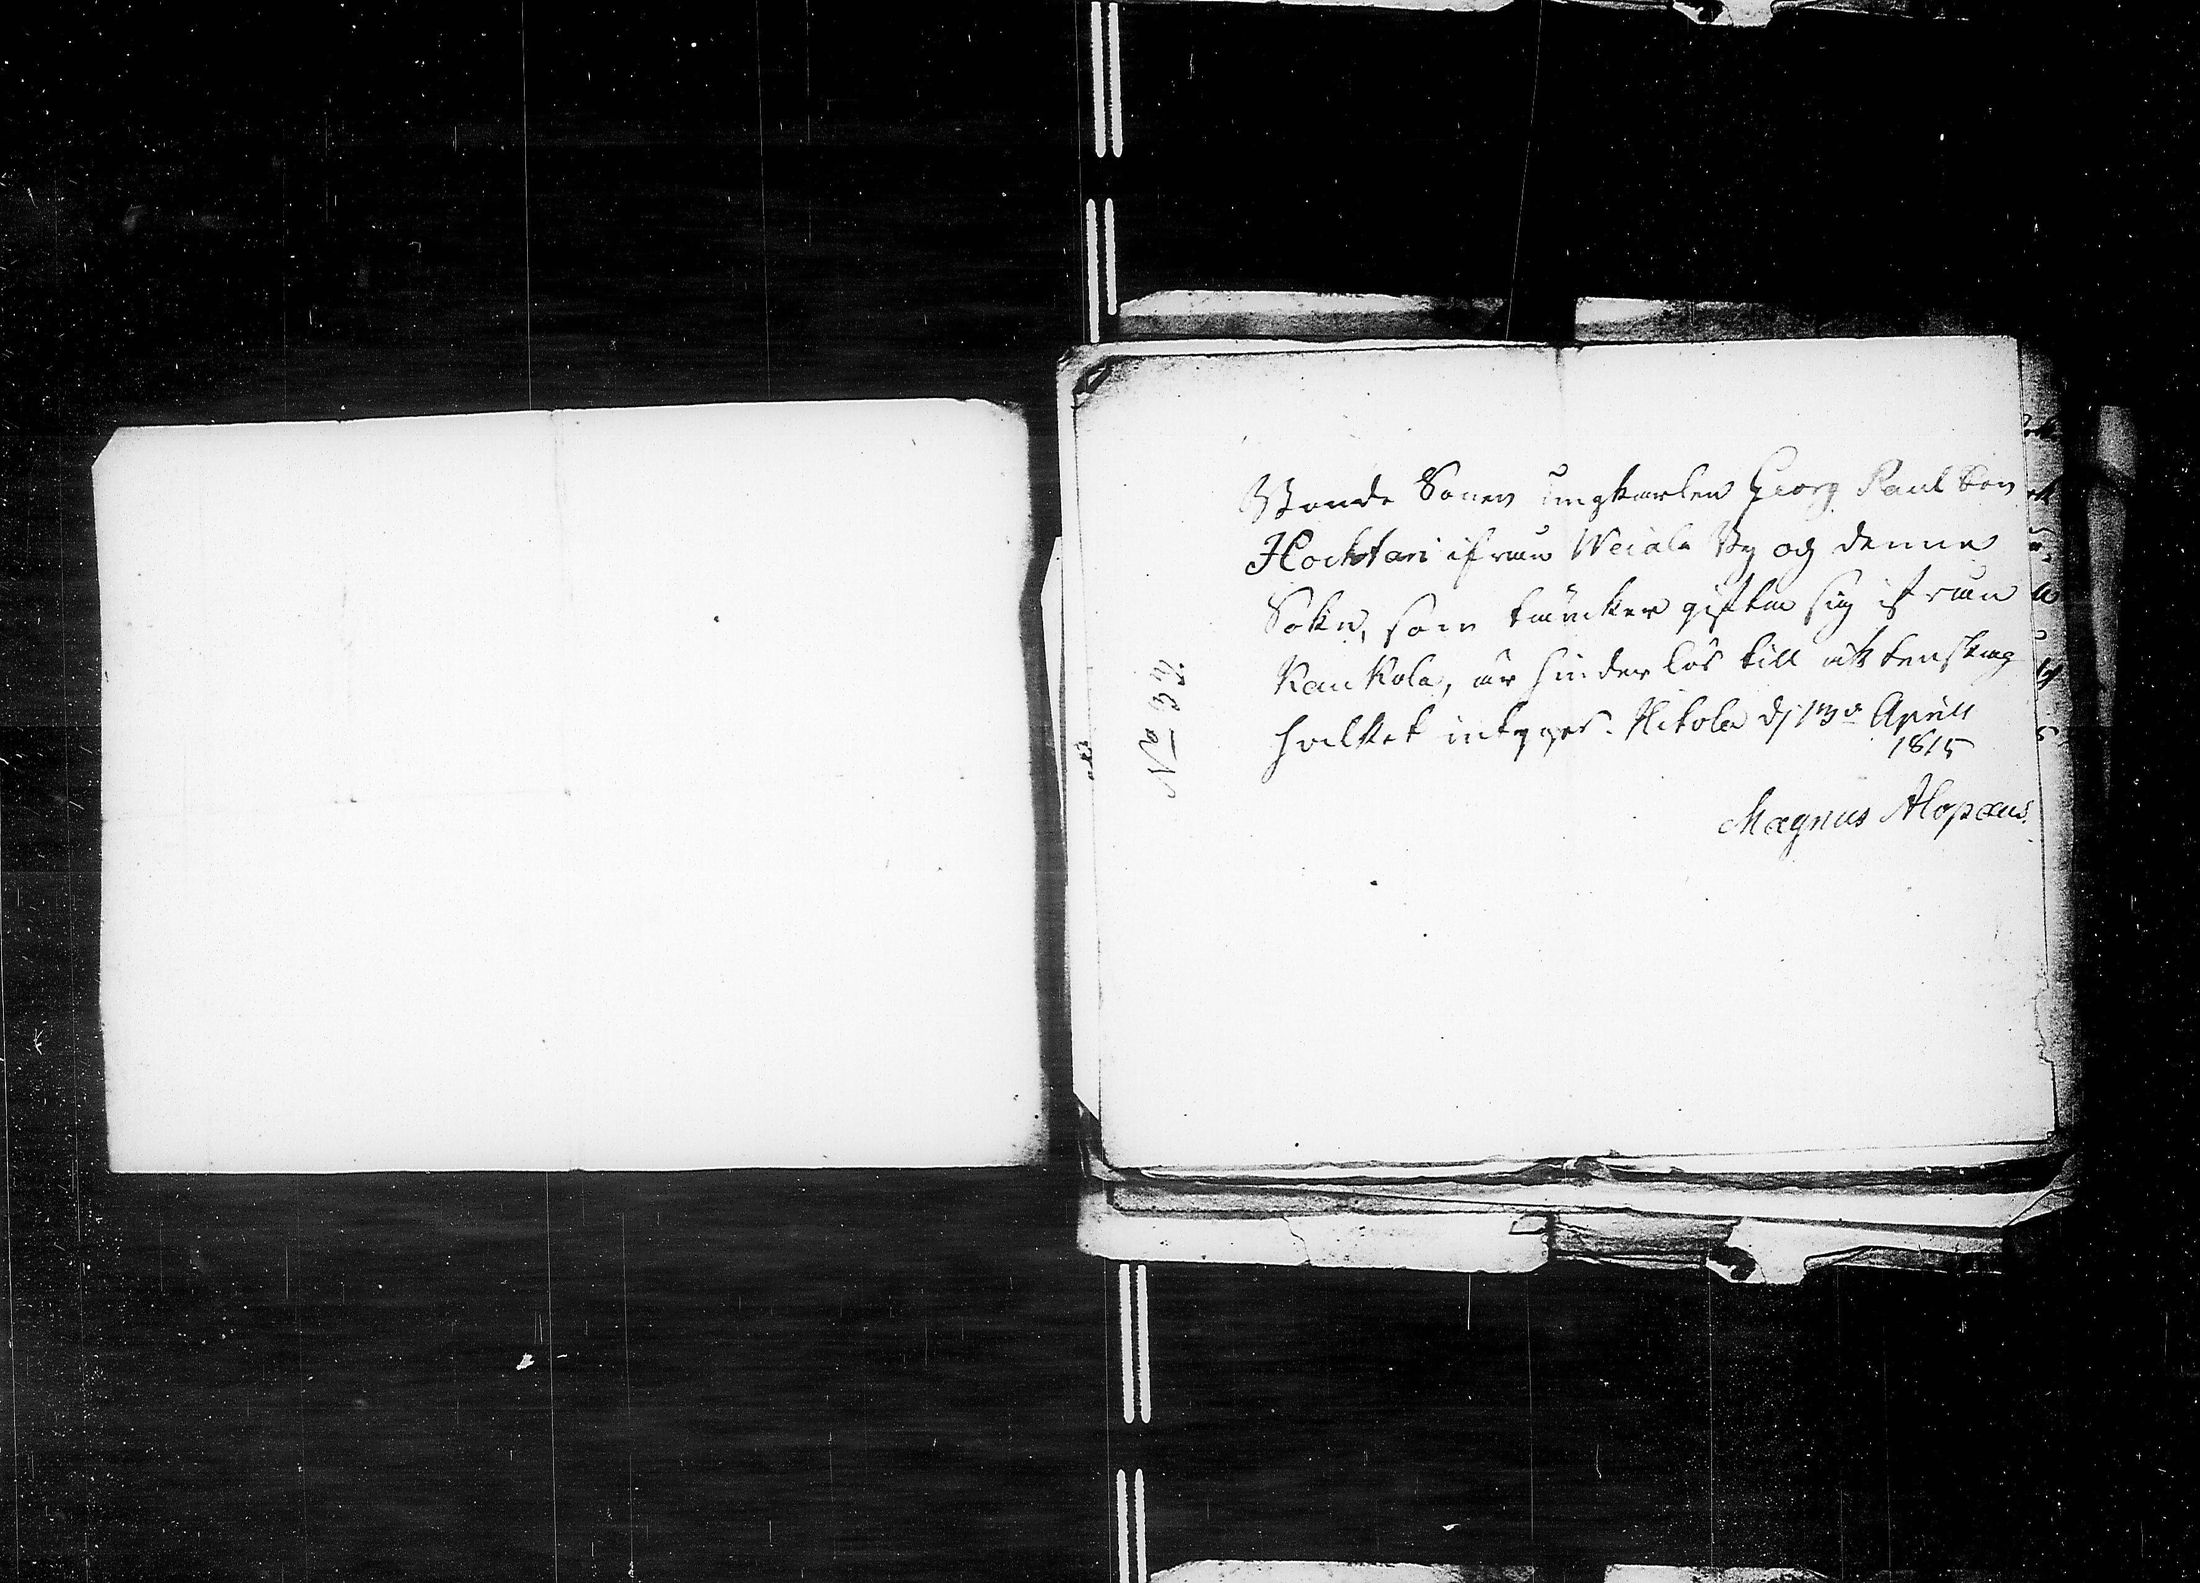 Bonde Sonen ungkarlen Georg Paul Son
Hockotari ifrån Weiala By og denne
Sokn, som täncker giftta sig ifrån
Kaukola, är hinderlös till ächtenskap
hvilket intyges. Hitola d. Aprill
1815
Magnus Alopæus.
No 32.